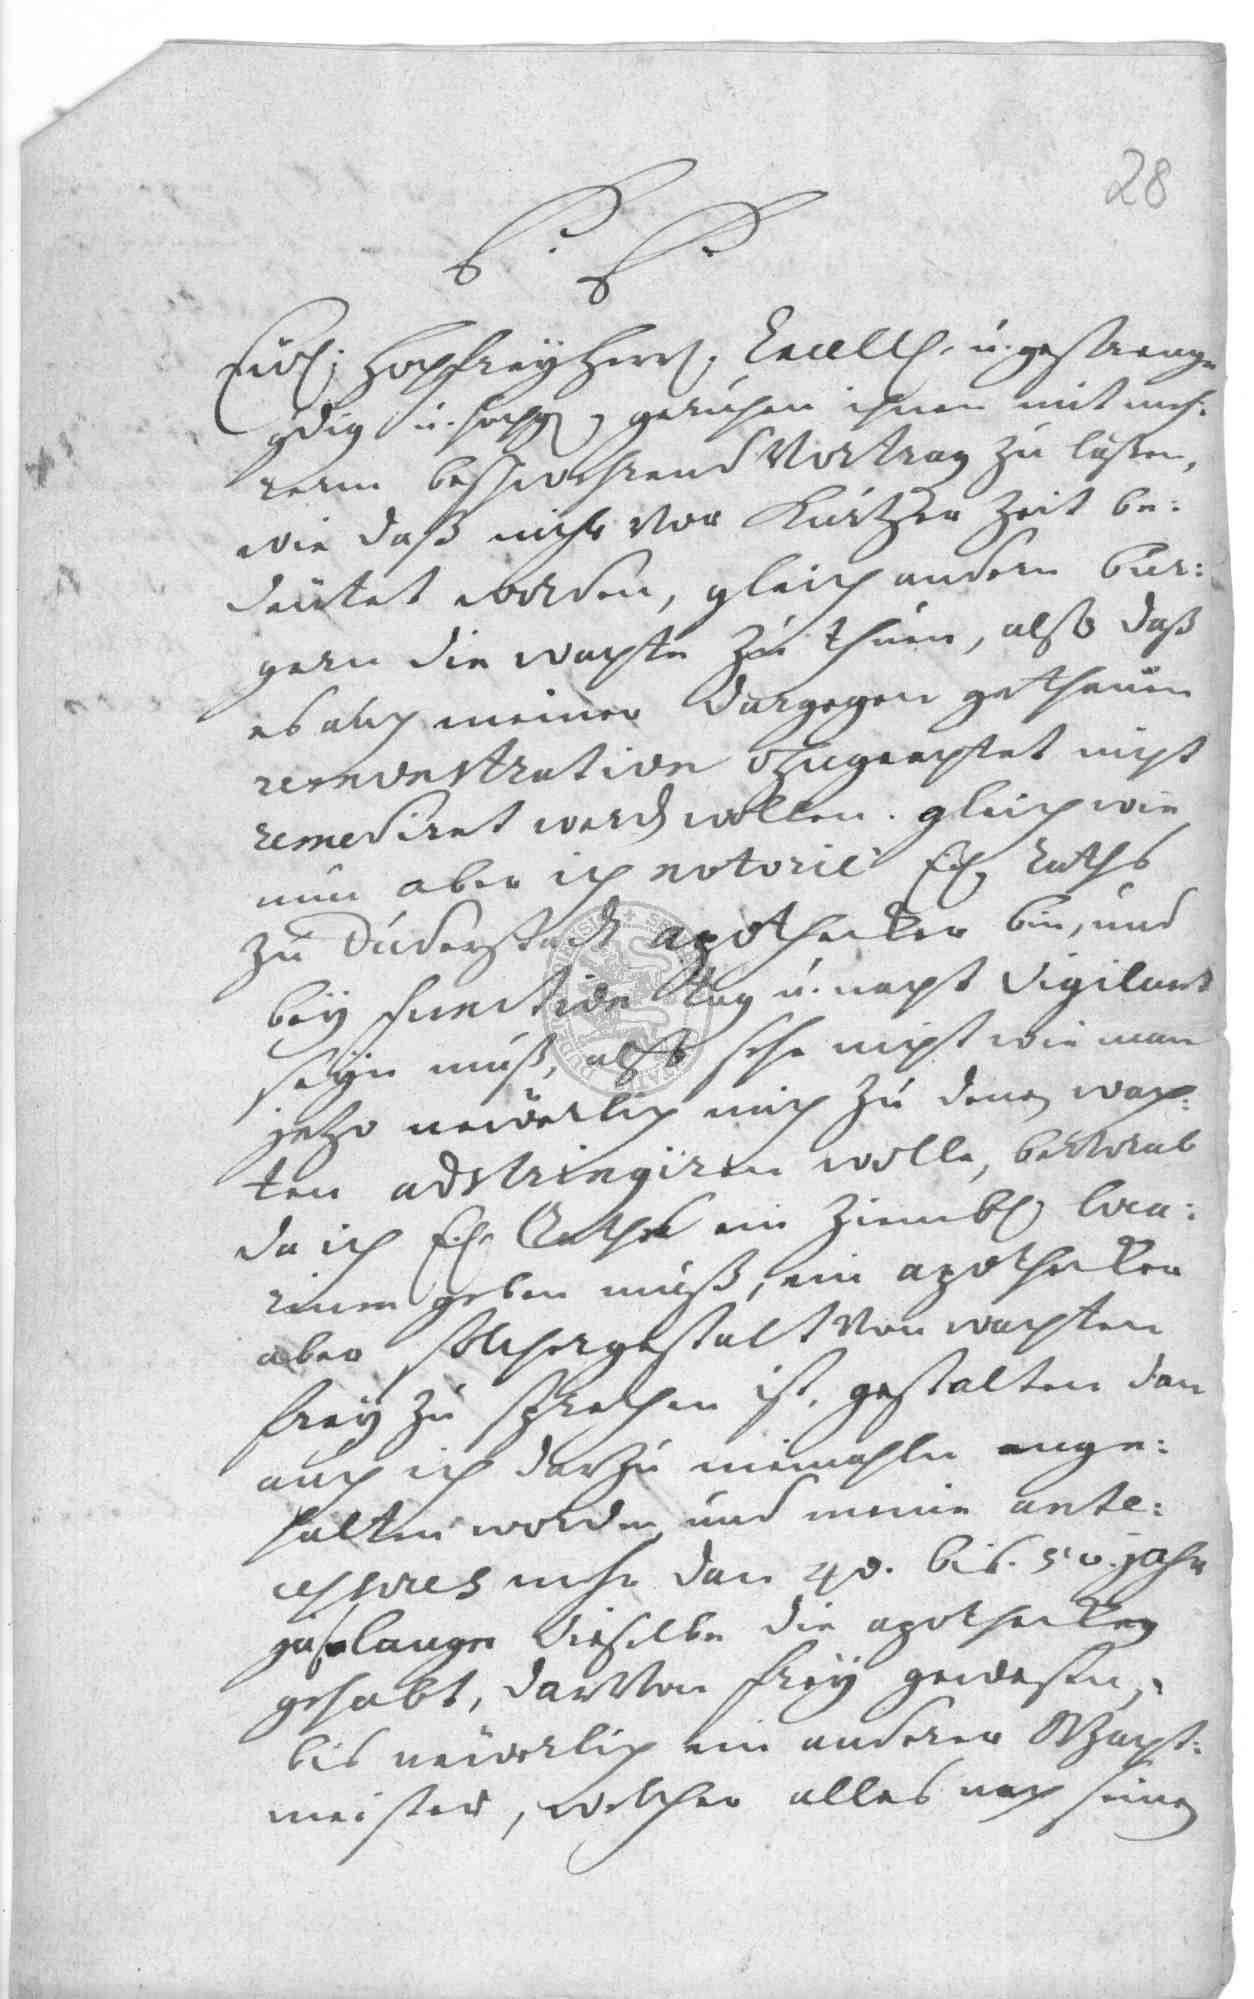 28
P. P.
Ew. HochfreyHerrl. Excell. u. gestrenge
gdig u. hochg. geruhen ihnen mit meh:
rerm beschwehrend Vortrag zu laßen,
wie daß mihr vor Kurtzer Zeit be:
deutet worden, gleich andern bür:
gern die wachte zu thuen, also daß
es auch meiner dargegen gethanen
remonstration ohngeachtet nicht
remediret werden wollen. gleich wie
nun aber ich notorie E. E. Raths
zu Duderstadt apothecker bin, und
bey function tag u. nacht vigilant
seyn muß, also sehe nicht wie man
jetzo neüerlich mich zu denen wach:
ten adstringiren wolle, bevorab
da ich E. E. Raths ein ziembl. loca:
rium geben muß, ein apothecker
aber solchergestalt von wachten
frey zu sprechen ist, gestalten dan
auch ich darzu niemahln ange:
halten worden, und meine ante:
cessores mehr dan 40. bis. 50. jahr
so lange dieselbe die apothecken
gehabt, darvon frey gewesen,
bis neüerlich ein anderer Wacht:
meister, welcher alles nach seinen